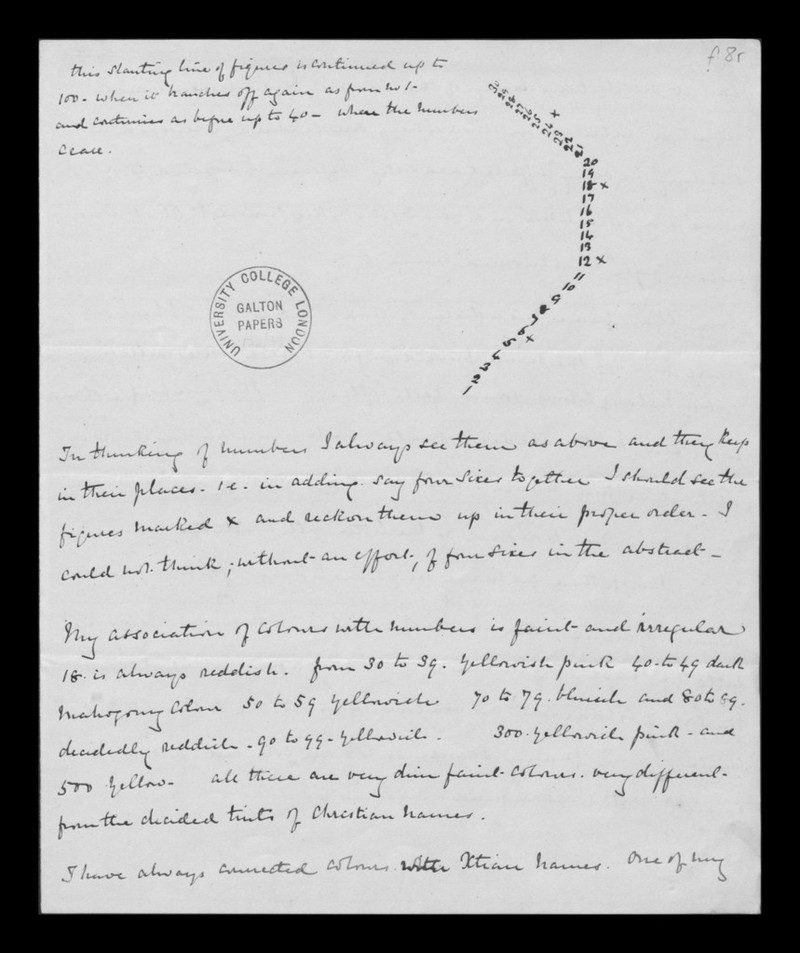 f. 8r
this slanting line of figures is continued up to
100 - when it branches off again as from no 1 -
and continues as before up to 40 - when the numbers
cease.
30
29
28
27
26
25
24 x
23
22
21
20
19
18 x
17
16
15
14
13
12 x
11
10
9
8
7
6 x
5
4
3
2
1
UNIVERSITY COLLEGE LONDON
GALTON
PAPERS
In thinking of numbers I always see them as above and they keep
in their places - i.e. in adding say four sixes together I should see the
figures marked x and reckon them up in their proper order - I
could not think, without an effort, of four sixes in the abstract -
My association of colours with numbers is faint and irregular
18 is always reddish. from 30 to 39. yellowish pink 40 to 49 dark
mahogony colour 50 to 59 yellowish 70 to 79. bluish and 80 to 89.
decidedly reddish - 90 to 99 - yellowish. 300. yellowish pink - and
500 yellow - all these are very dim faint colours. very different
from the decided tints of Christian names.
I have always connected colours with Xtian names. One of my